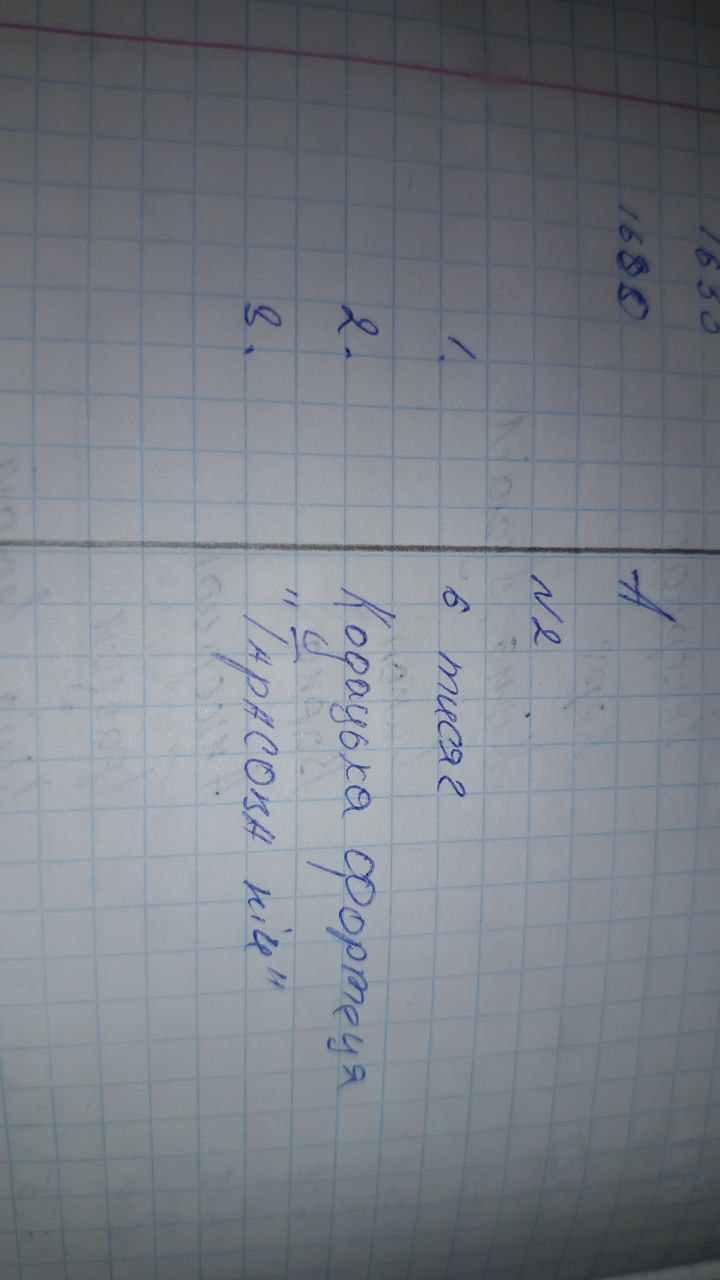 А
N2
1. 6 тисяч
2. Кодацька фортеця
3. "Тарасова ніч"